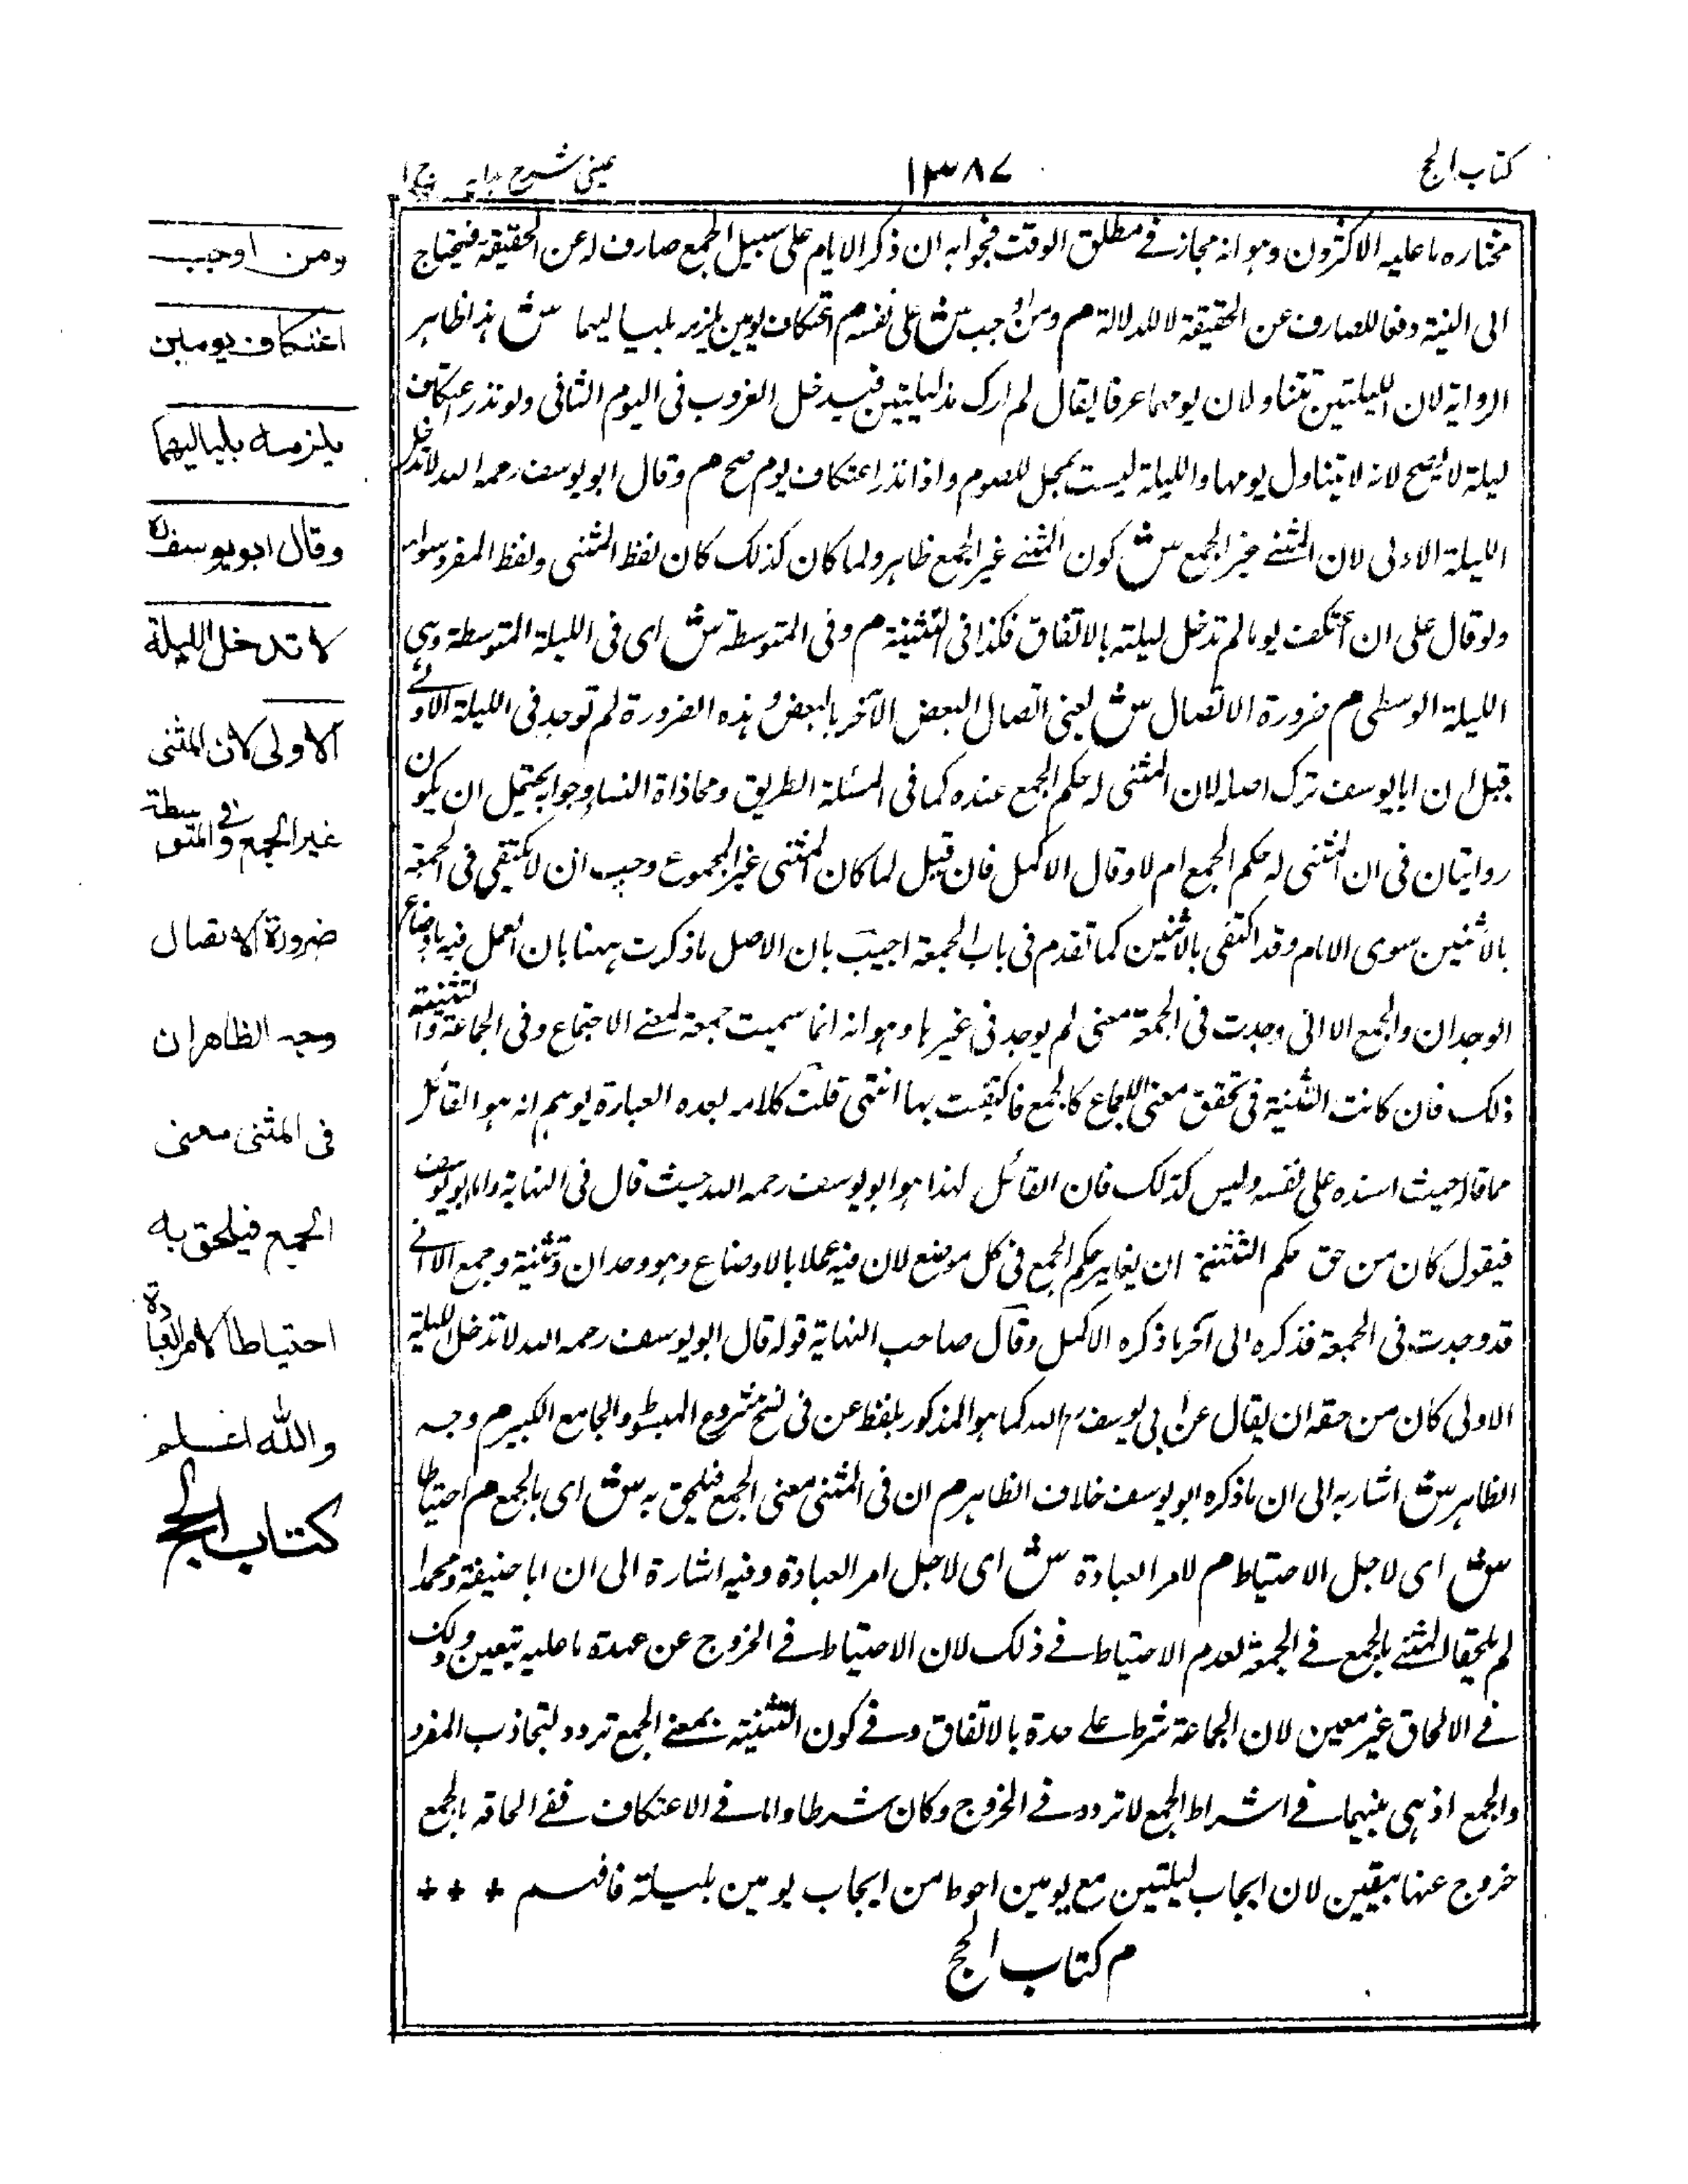 كتاب الحج
١٣٨٧
عينى شرح هدايه ج ١
مختاره ما عليه الاكثرون وهو انه مجاز فے مطلق الوقت فجوابه ان ذكر الايام على سبيل الجمع صارف له عن الحقيقة فيحتاج
الى النية دفعا للصارف عن الحقيقة لا للدلالة م ومن اوجب ش على نفسه م اعتكاف يومين يلزمه بلياليهما ش هذا ظاهر
الرواية لان الليلتين تتناولان يومهما عرفا يقال لم ارك مذ ليلتين فيدخل الغروب فى اليوم الثانى ولو نذر اعتكاف
ليلة لا يصح لانه لا يتناول يومها والليلة ليست بمحل للصوم واذا نذر اعتكاف يوم صح م وقال ابو يوسف رحمه الله لا تدخل
الليلة الاولى لان المثنے غير الجمع ش كون المثنے غير الجمع ظاهر ولما كان كذلك كان لفظ المثنى ولفظ المفرد سواء
ولو قال على ان اعتكف يوما لم تدخل ليلته بالاتفاق فكذا فى التثنية م وفى المتوسطة ش اى فى الليلة المتوسطة وهى
الليلة الوسطى م ضرورة الاتصال ش يعنى اتصال البعض الآخر بالبعض و هذه الضرورة لم توجد فى الليلة الاولے
قيل ان ابا يوسف ترك اصله لان المثنى له حكم الجمع عنده كما فى المسئلة الطريق ومحاذاة النساء وجوابه يحتمل ان يكون
روايتان فى ان المثنى له حكم الجمع ام لا وقال الاكمل فان قيل لما كان المثنى غير المجموع وجب ان لا يكتفى فى الجمعة
بالاثنين سوى الامام وقد اكتفى بالاثنين كما تقدم فى باب الجمعة اجيب بان الاصل ما ذكرت ههنا بان العمل فيه باوضاع
الوحدان والجمع الا انى وجدت فى الجمعة معنى لم يوجد فى غيرها وهو انه انما سميت جمعة لمعنے الاجتماع وفى الجماعة والتثنية
ذلك فان كانت التثنية فى تحقق معنى الاجتماع كالجمع فاكتفيت بها انتهى قلت كلامه بعده العبارة يوهم انه هو القائل
مما قاله حيث اسنده على نفسه وليس كذلك فان القائل لهذا هو ابو يوسف رحمه الله حيث قال فى النهاية واما ابو يوسف
فيقول كان من حق حكم التثنية ان يغاير حكم الجمع فى كل موضع لان فيه عملا بالاوضاع وهو وحدان وتثنية وجمع الا انے
قد وجدت فى الجمعة فذكره الى آخر ما ذكره الاكمل وقال صاحب النهاية قوله قال ابو يوسف رحمه الله لا تدخل الليلة
الاولى كان من حقه ان يقال عن ابى يوسف رحمه الله كما هو المذكور بلفظ عن فى نسخ شروح المبسوط والجامع الكبير م وجه
الظاهر ش اشار به الى ان ما ذكره ابو يوسف خلاف الظاهر م ان فى المثنى معنى الجمع فيلحق به ش اى بالجمع م احتياطا
ش اى لاجل الاحتياط م لامر العبادة ش اى لاجل امر العبادة وفيه اشارة الى ان ابا حنيفة ومحمدا
لم يلحقا المثنے بالجمع فے الجمعة لعدم الاحتياط فے ذلك لان الاحتياط فے الخروج عن عهدة ما عليه بيقين وذلك
فے الالحاق غير معين لان الجماعة شرط علے حدة بالاتفاق وفے كون التثنية بمعنے الجمع تردد لتجاذب المفرد
والجمع اذ هى بينهما فے اشتراط الجمع لا تردد فے الخروج وكان شرطا واما فے الاعتكاف ففے الحاقه بالجمع
خروج عنها بيقين لان ايجاب ليلتين مع يومين احوط من ايجاب يومين بليلة فافهم + + +
م كتاب الحج
ومن اوجب
اعتكاف يومين
يلزمه بلياليهما
وقال ابو يوسف رح
لا تدخل الليلة
الاولى لان المثنى
غير الجمع وفى المتوسطة
ضرورة الاتصال
وجه الظاهر ان
فى المثنى معنى
الجمع فيلحق به
احتياطا لامر العبادة
والله اعلم
كتاب الحج